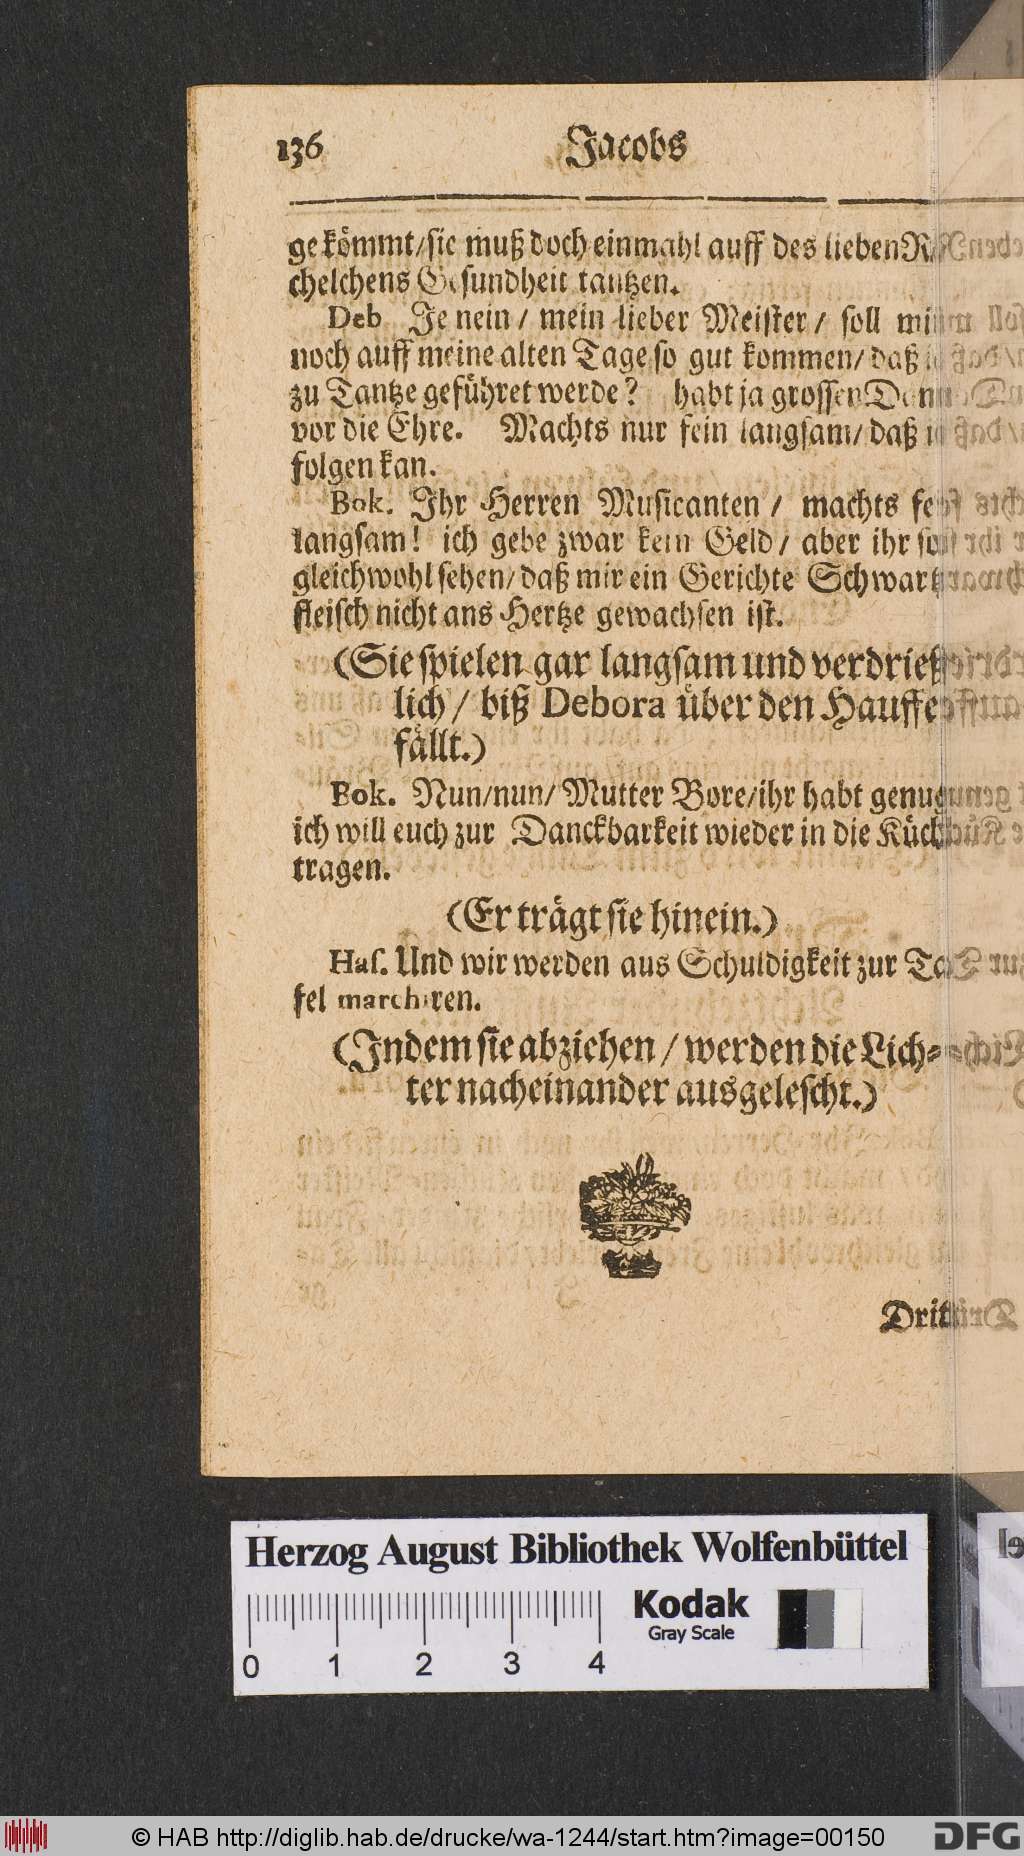 136 Jacobs
ge kömmt/sie muß doch einmahl auff des lieben
chelchens Gesundheit tantzen.
Deb Je nein / mein lieber Meister / soll
noch auff meine alten Tage so gut kommen/ daß
zu Tantze geführet werde? habt ja grossen
vor die Ehre. Machts nur fein langsam/ daß
folgen kan.
Bok. Ihr Herren Musicanten / machts
langsam! ich gebe zwar kein Geld / aber ihr
gleichwohl sehen/ daß mir ein Gerichte Schwartz
fleisch nicht ans Hertze gewachsen ist.
(Sie spielen gar langsam und verdrieß
lich / biß Debora über den Hauffe
fällt.)
Bok. Nun/nun/ Mutter Bore/ihr habt genug
ich will euch zur Danckbarkeit wieder in die Küch
tragen.
(Er trägt sie hinein.)
Haſ. Und wir werden aus Schuldigkeit zur Ta
fel marchiren.
(Indem sie abziehen / werden die Lich-
ter nacheinander ausgelescht.)
Drit
Herzog August Bibliothek Wolfenbüttel
Kodak
Gray Scale
0 1 2 3 4
© HAB http://diglib.hab.de/drucke/wa-1244/start.htm?image=00150
DFG